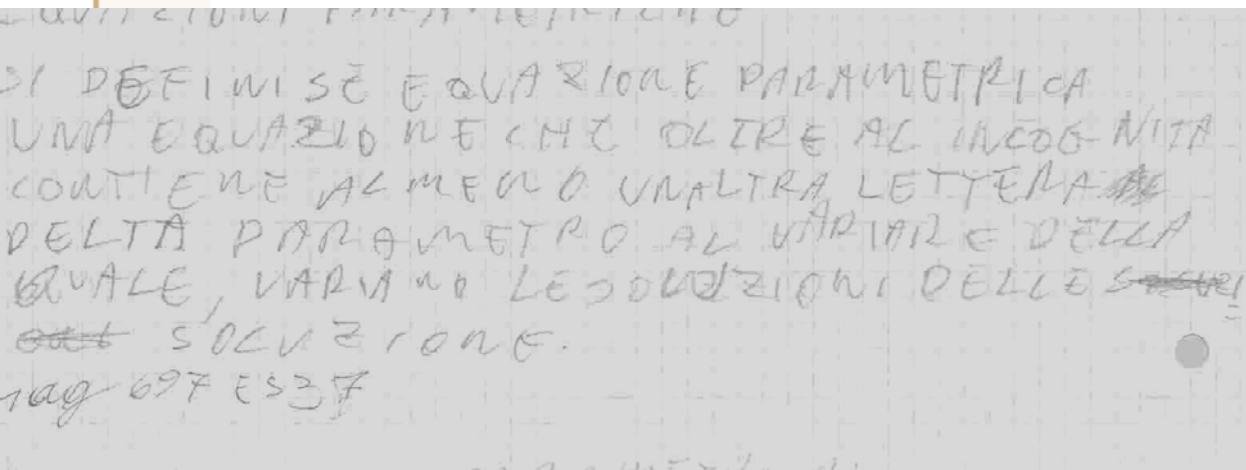 EQUAZIONI PARAMETRICHE
SI DEFINISE EQUAZIONE PARAMETRICA
UNA EQUAZIONE CHE OLTRE AL INCOGNITA
CONTIENE ALMENO UNALTRA LETTERA
DELTA PARAMETRO AL VARIARE DELLA
QUALE, VARIANO LE SOLUZIONI DELLE
SOLUZIONE.
pag 697 ES 37